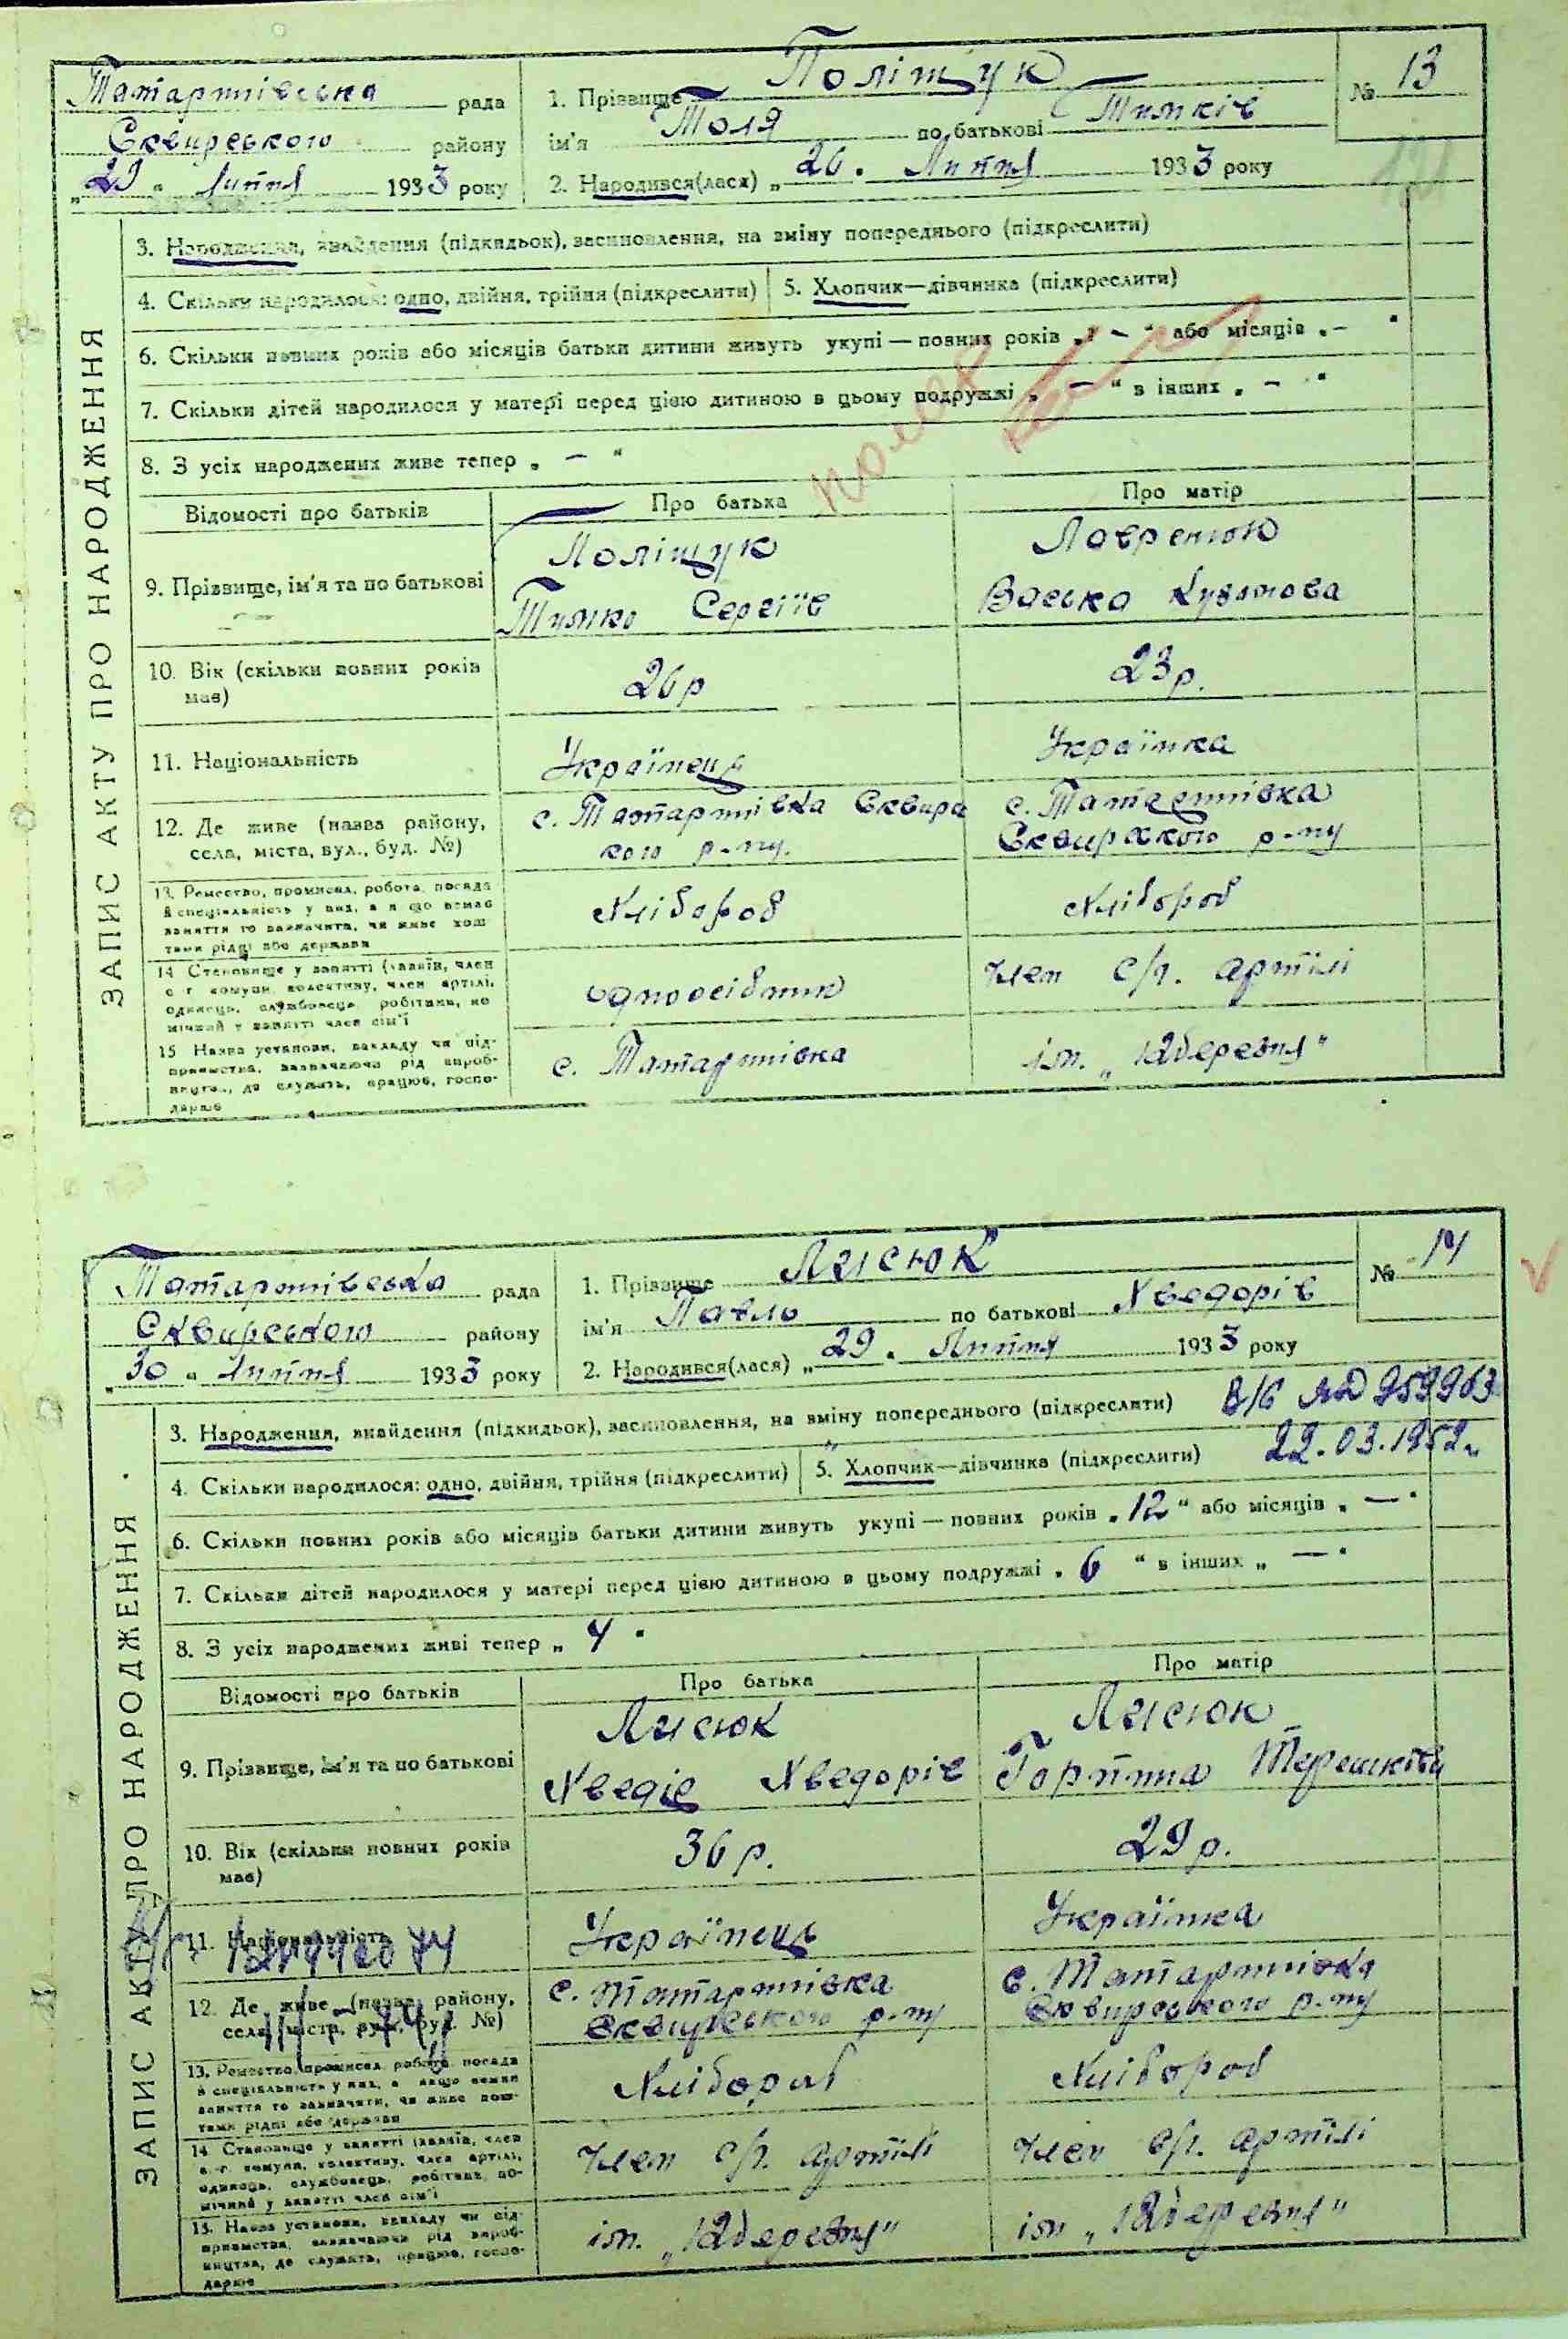 Татартнівська рада
Сквирського району
„29“ липня 1933 року
1. Прізвище Поліщук
ім'я Толя по батькові Тимків
2. Народився(лася) „26“ Липня 1933 року
№ 13
ЗАПИС АКТУ ПРО НАРОДЖЕННЯ
3. Народження, знайдення (підкидьок), засиновлення, на зміну попереднього (підкреслити)
4. Скільки народилося: одно, двійня, трійня (підкреслити)
5. Хлопчик—дівчинка (підкреслити)
6. Скільки повних років або місяців батьки дитини живуть укупі — повних років „ — “ або місяців „ — “
7. Скільки дітей народилося у матері перед цією дитиною в цьому подружжі „ — “ в інших „ — “
8. З усіх народжених живе тепер „ — “
помер
Відомості про батьків
Про батька
Про матір
9. Прізвище, ім'я та по батькові
Поліщук
Тимко Сергіїв
Лавренюк
Васька Кузьмова
10. Вік (скільки повних років має)
26 р
23 р.
11. Національність
Українець
Українка
12. Де живе (назва району,
села, міста, вул., буд. №)
с. Татартнівка Сквирс
кого р-ну.
с. Татартнівка
Сквирского р-ну
13. Ремество, промисел, робота, посада
й спеціальність у них, а якщо немає
заняття то зазначити, чи живе кош
тами рідні або держави
Хлібороб
Хлібороб
14. Становище у занятті (хазяїн, член
с.-г. комуни, колективу, член артілі,
одинець, службовець, робітник, по
мічний у занятті член сім'ї
одноосібник
член с/г. артілі
15. Назва установи, закладу чи під-
приємства, зазначаючи рід вироб-
ництва, де служить, працює, госпо-
дарює
с. Татартнівка
ім. „12 березня“
Татартнівська рада
Сквирського району
„30“ липня 1933 року
1. Прізвище Лисюк
ім'я Павло по батькові Хведорів
2. Народився(лася) „29“ Липня 1933 року
№ 14
ЗАПИС АКТУ ПРО НАРОДЖЕННЯ
3. Народження, знайдення (підкидьок), засиновлення, на зміну попереднього (підкреслити)
22.03.1952
4. Скільки народилося: одно, двійня, трійня (підкреслити)
5. Хлопчик—дівчинка (підкреслити)
6. Скільки повних років або місяців батьки дитини живуть укупі — повних років „12“ або місяців „ — “
7. Скільки дітей народилося у матері перед цією дитиною в цьому подружжі „ 6 “ в інших „ — “
8. З усіх народжених живі тепер „ 4 “
Відомості про батьків
Про батька
Про матір
9. Прізвище, ім'я та по батькові
Лисюк
Хведір Хведорів
Лисюк
Горпина Терешкова
10. Вік (скільки повних років має)
36 р.
29 р.
11. Національність
Українець
Українка
12. Де живе (назва району,
села, міста, вул., буд. №)
с. Татартнівка
Сквирського р-ну
с. Татартнівка
Сквирського р-ну
13. Ремество, промисел, робота, посада
й спеціальність у них, а якщо немає
заняття то зазначити, чи живе кош-
тами рідні або держави
Хлібороб
Хлібороб
14. Становище у занятті (хазяїн, член
с.-г. комуни, колективу, член артілі,
одинець, службовець, робітник, по-
мічний у занятті член сім'ї
член с/г. артілі
член с/г. артілі
15. Назва установи, закладу чи під-
приємства, зазначаючи рід вироб-
ництва, де служить, працює, госпо-
дарює
ім. „12 березня“
ім „12 березня“